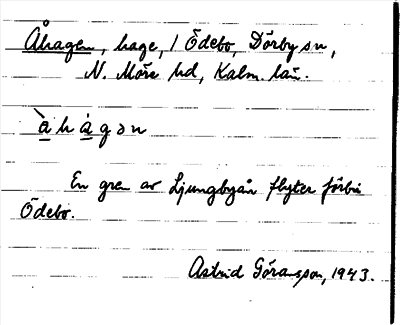 Åhagen, hage, / Ödebo, Dörby sn,
N. Möre hd, Kalm. län.
ˋåhågən
En gren av Ljungbyån flyter förbi
Ödebo.
Astrid Göransson, 1943.